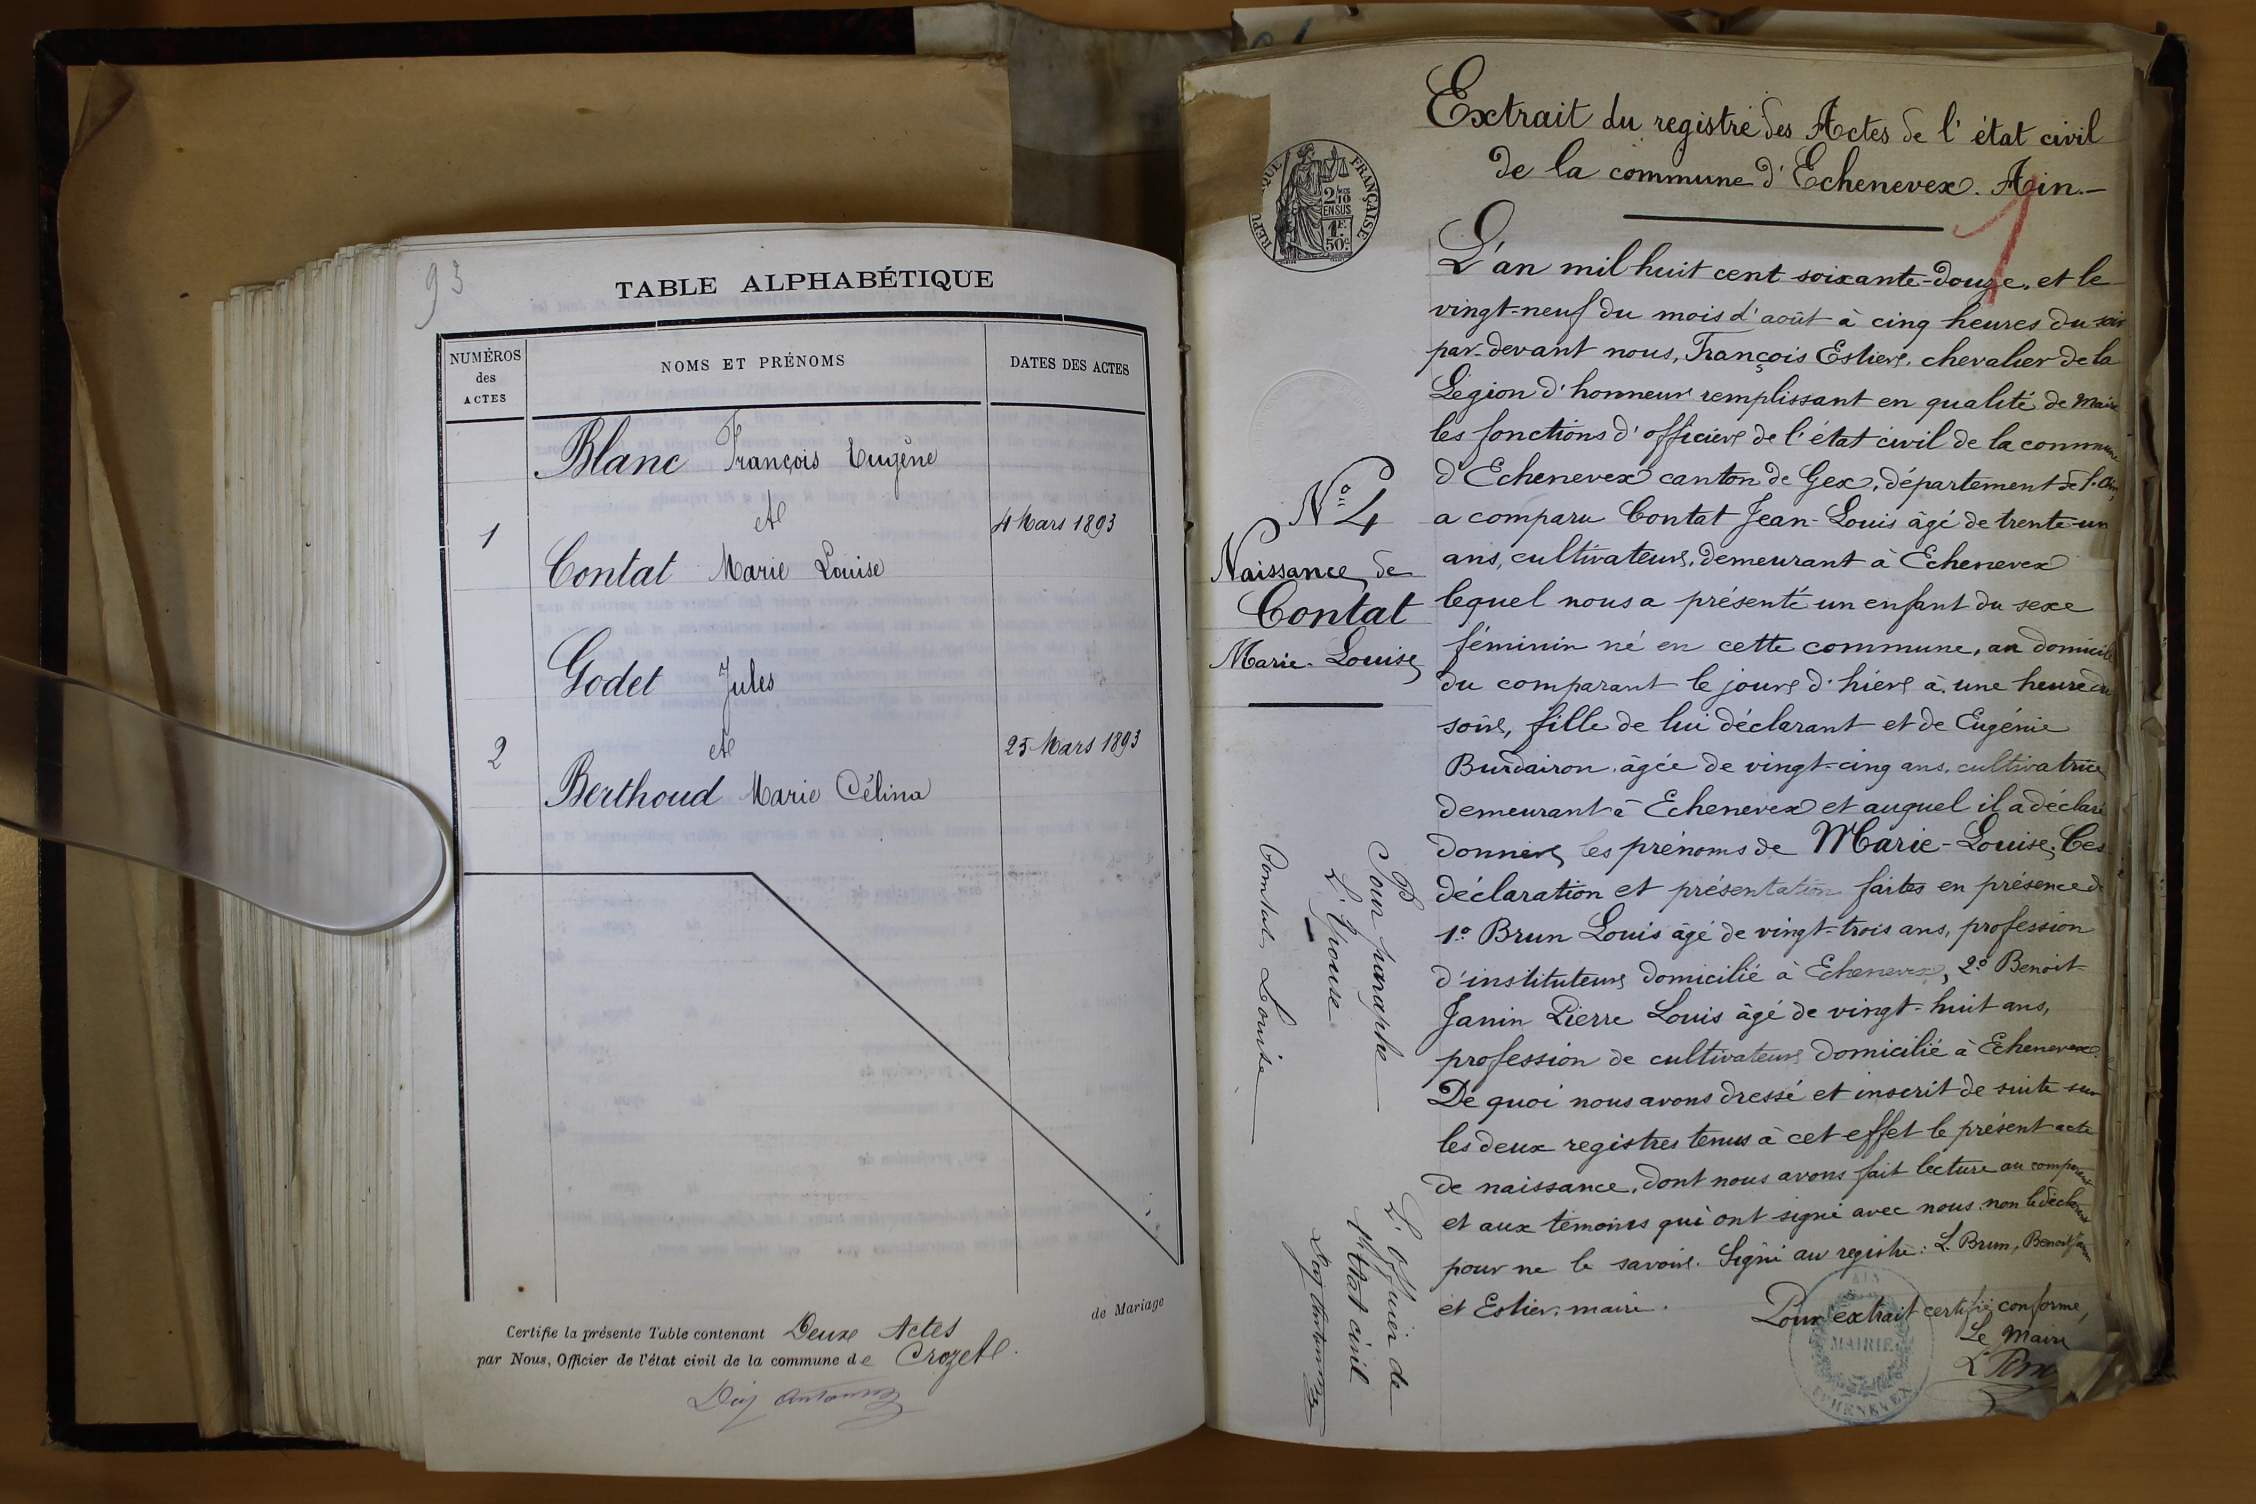 93
TABLE ALPHABÉTIQUE
NUMÉROS
des
ACTES
NOMS ET PRÉNOMS
DATES DES ACTES
Blanc François Eugène
et
1
4 Mars 1893
Contat Marie Louise
Godet Jules
et
2
25 Mars 1893
Berthoud Marie Célina
de Mariage
Certifie la présente Table contenant Deux Actes
par Nous, Officier de l'état civil de la commune de Crozet.
1
Extrait du registre des Actes de l'état civil
de la commune d'Echenevex. Ain.-
RÉPUBLIQUE FRANÇAISE
2/10
EN SUS
1F.
50c.
N° 4
Naissance de
Contat
Marie-Louise
L'an mil huit cent soixante-douze, et le
vingt-neuf du mois d'août à cinq heures du soir
par-devant nous, François Estier, chevalier de la
Légion d'honneur remplissant en qualité de Maire
les fonctions d'officier de l'état civil de la commune
d'Echenevex canton de Gex, département de l'Ain,
a comparu Contat Jean-Louis âgé de trente-un
ans, cultivateur, demeurant à Echenevex
lequel nous a présenté un enfant du sexe
féminin né en cette commune, au domicile
du comparant le jour d'hier à une heure du
soir, fille de lui déclarant et de Eugénie
Burdairon, âgée de vingt-cinq ans, cultivatrice
demeurant à Echenevex et auquel il a déclaré
donner les prénoms de Marie-Louise. Ces
déclaration et présentation faites en présence de
1° Brun Louis âgé de vingt-trois ans, profession
d'instituteur domicilié à Echenevex, 2° Benoit-
Janin Pierre Louis âgé de vingt-huit ans,
profession de cultivateur domicilié à Echenevex.
De quoi nous avons dressé et inscrit de suite sur
les deux registres tenus à cet effet le présent acte
de naissance, dont nous avons fait lecture au comparant
et aux témoins qui ont signé avec nous non le déclarant
pour ne le savoir. Signé au registre: L. Brun, Benoit Janin
et Estier, maire.
Pour extrait certifié conforme,
Le Maire
MAIRIE
ECHENEVEX
AIN
Pour paraphe
L'Epouse
Contat Louise
L'officier de
l'état civil